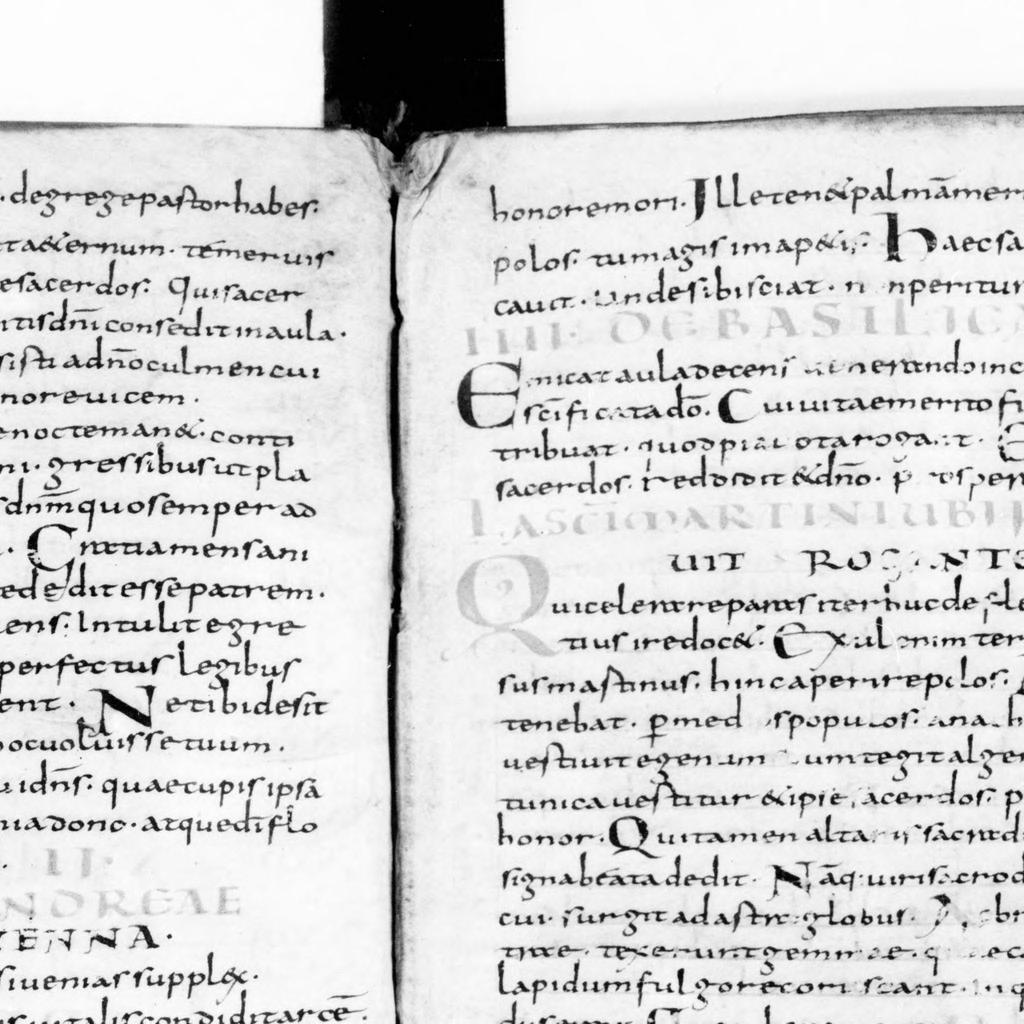 degregepastorhabes.
ta&ernum. tẽmeruis
esacerdos. Quisacer
ntisdñi consedit inaula.
sisti adñoculmencui
norevicem.
enocteman&. conti
ni. gressibus ut pla
sdnm̄quosemperad
Gratiamensani
ededitessepatrem.
ens. Intulit egre
perfectus legibus
ent. Netibidesit
ocuoluissetuum.
uidñs. quaecupisipsã
uadono. atquediflo
II.
NDREAE
ENNA.
siueniassupplex.
uitaliscondiditarcē.
honoremori. Illeten&palmãmer
polos. tumagisimap&is. Haecsa
cauit. undesibisciat. n nperitur
IIII. DEBASILICA
Emicatauladecens uenerandoinc
scificatadõ. Cuiuitaemeritofi
tribuat. quodpia uotarogant.
sacerdos. reddidit&dño. p rosper
LASCIMARTINIUBI
UIT ROGANTE
Quicelerereparasiterhucdefle
tiusiredoc&. Exulenimter
susmastinus. hincaperirepolos.
tenebat. p̱med spopulos. ana h
uestiuitegenum umtegitalge
tunicauestitur&ipse sacerdos. p
honor. Quitamen altaris sacrad
signabeatadedit. Nãq:uirisacrod
cui. surgitadastraglobus.
trae. texeruntgemmae. q aec
lapidumfulgorecoruscant. inq